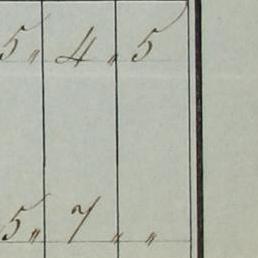 5 〃 4 〃 5
5 〃 7 〃 〃